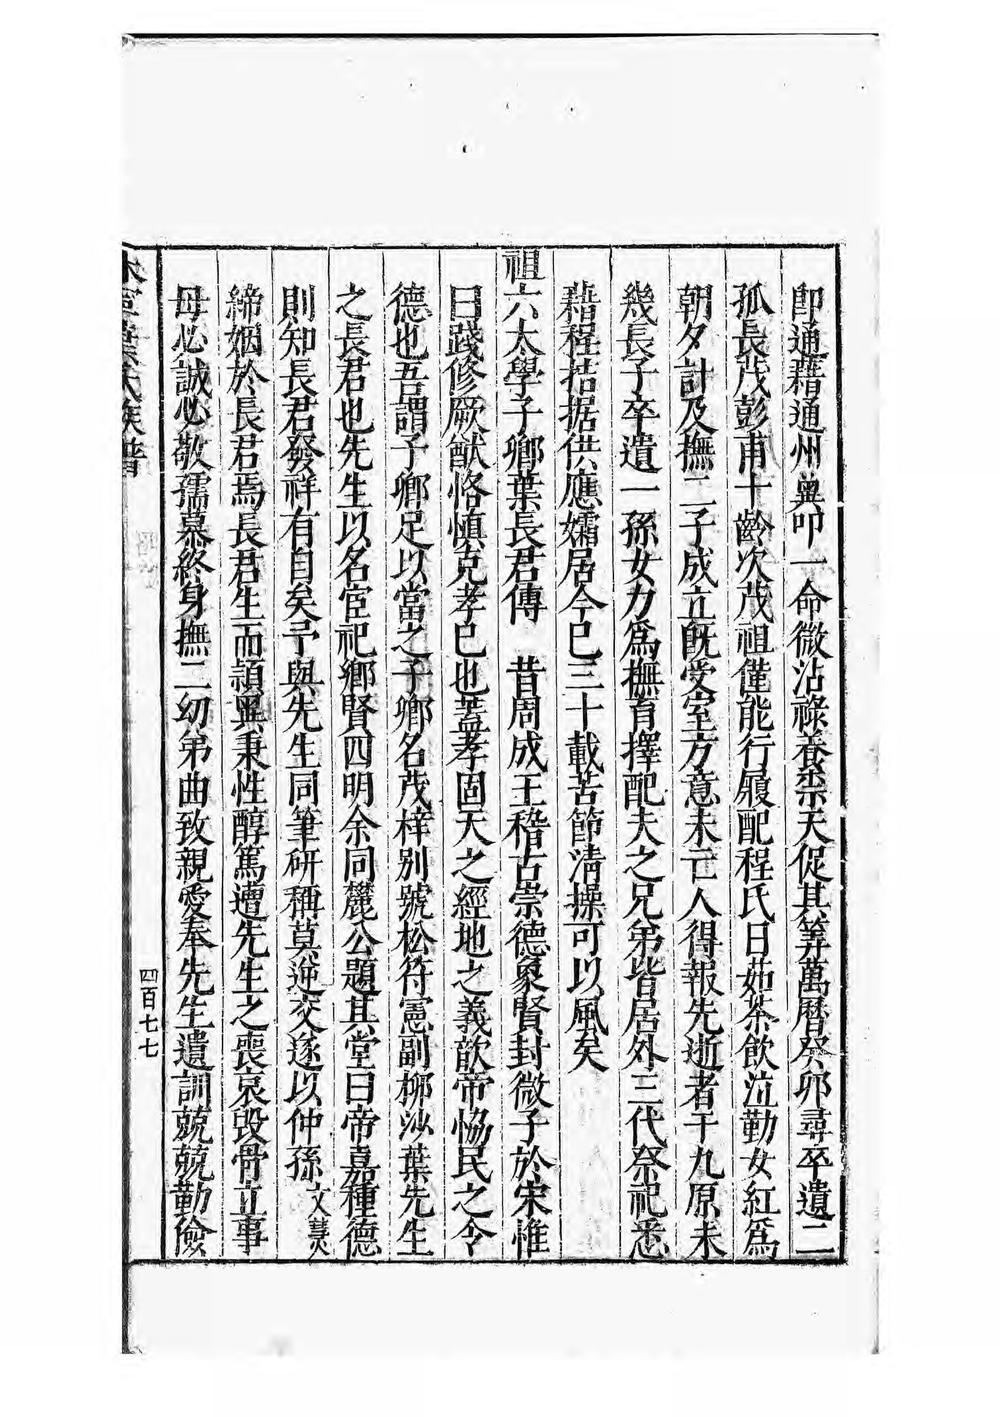 卽通藉通州㒷叩一命微沾祿養柰天促其筭萬曆癸卯尋卒遺二
孤長茂彭甫十齡次茂祖僅能行履配程氏日茹荼飲泣勤女紅爲
朝夕計及撫二子成立旣受室方意未亡人得報先逝者于九原未
幾長子卒遺一孫女力爲撫育擇配夫之兄弟皆居外三代祭祀悉
藉程拮据供應孀居今已三十載苦節清操可以風矣
祖六太學子卿葉長君傳　昔周成王稽古崇德象賢封微子於宋惟
曰踐修厥猷恪愼克孝已也蓋孝固天之經地之義歆帝恊民之令
德也吾謂子卿足以當之子卿名茂梓别號松符憲副柳沙葉先生
之長君也先生以名宦祀鄉賢四明余同麓公題其堂曰帝嘉種德
則知長君發祥有自矣予與先生同筆硏稱莫逆交遂以仲孫文㷸
締姻於長君焉長君生而頴異秉性醇篤遭先生之喪哀毀骨立事
母必誠必敬孺慕終身撫二幼弟曲致親愛奉先生遺訓兢兢勤儉
氏族譜
四百七七